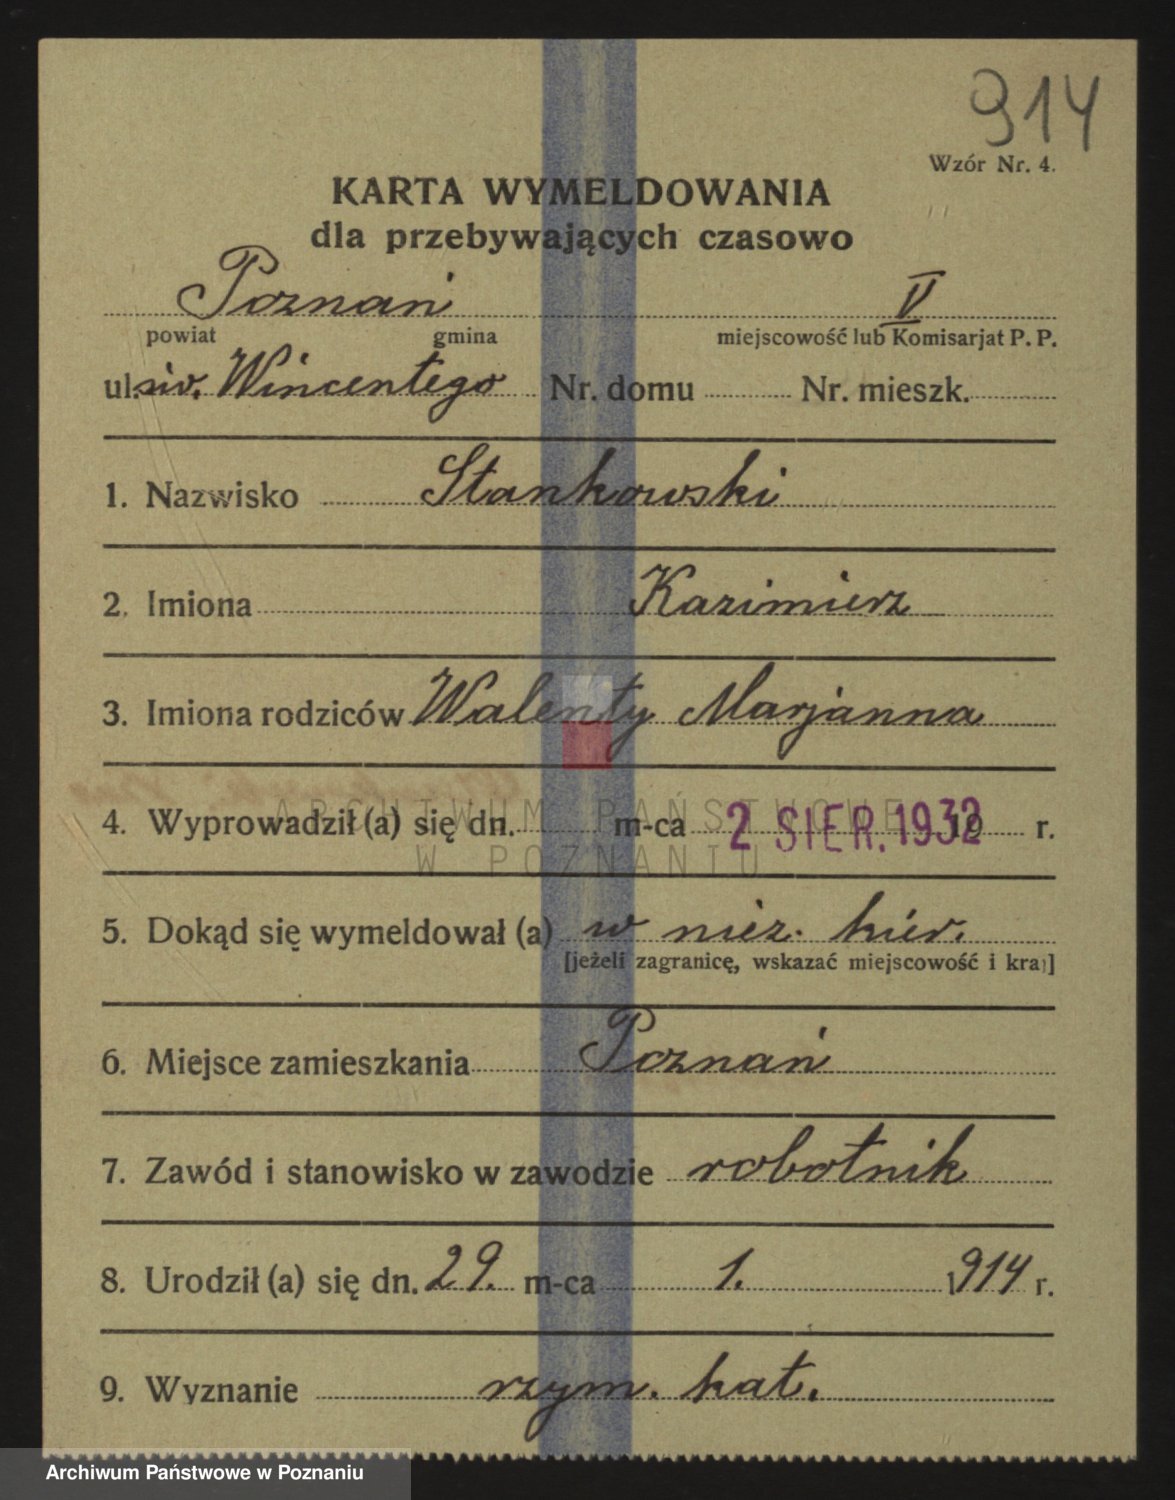 914
Wzór Nr. 4.
KARTA WYMELDOWANIA
dla przebywających czasowo
Poznań V
powiat gmina miejscowość lub Komisarjat P. P.
ul. św. Wincentego Nr. domu Nr. mieszk.
1. Nazwisko Stankowski
2. Imiona Kazimierz
3. Imiona rodziców Walenty Marjanna
4. Wyprowadził (a) się dn. m-ca 2 SIER. 1932 19 r.
ARCHIWUM PAŃSTWOWE
W POZNANIU
5. Dokąd się wymeldował (a) w niez. kier.
[jeżeli zagranicę, wskazać miejscowość i kraj]
6. Miejsce zamieszkania Poznań
7. Zawód i stanowisko w zawodzie robotnik
8. Urodził (a) się dn. 29. m-ca 1. 1914 r.
9. Wyznanie rzym. kat.
Archiwum Państwowe w Poznaniu